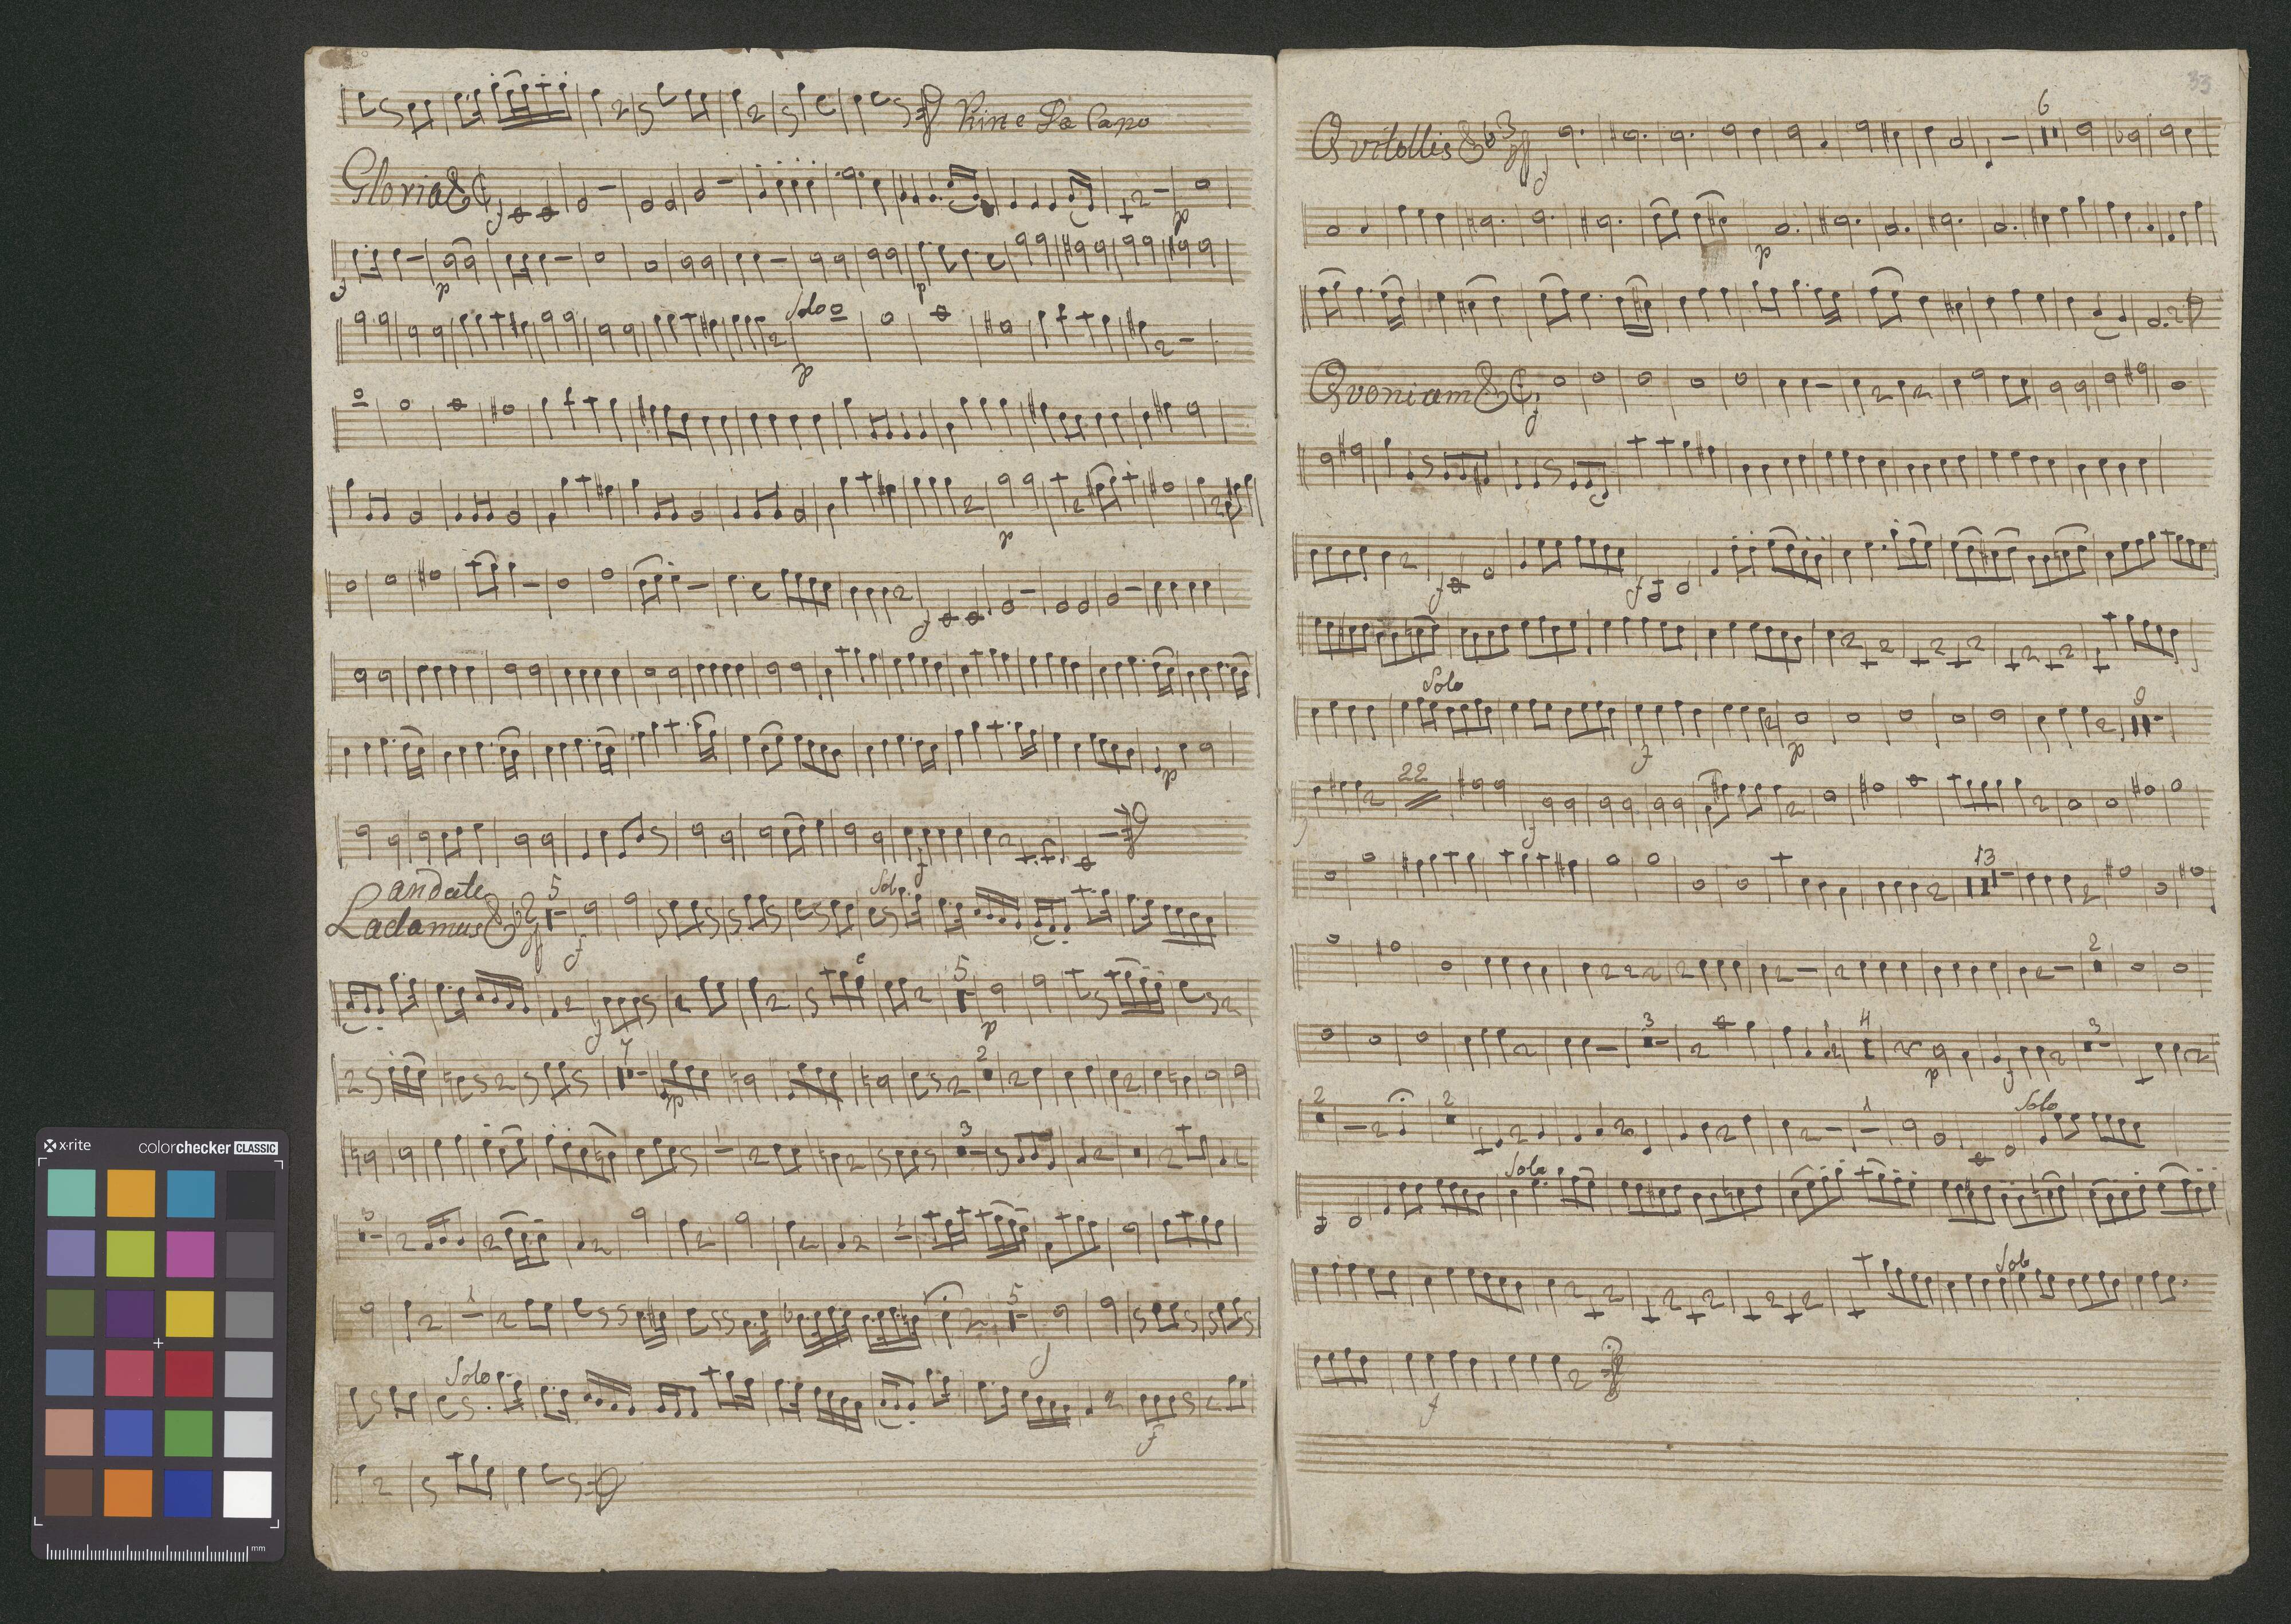 Kirie Da Capo
Gloria
f
p
f
p
p
Solo
p
p
f
p
f
andate
Ladamus
5
f
Solo
f
5
p
7
p
2
3
3
1
1
5
f
Solo
f
33
Qvitollis
3
f
6
p
Qvoniam
f
f
f
Solo
f
p
9
22
f
13
2
3
4
p
f
3
2
2
1
Solo
Solo
Solo
f
x·rite
colorchecker CLASSIC
mm